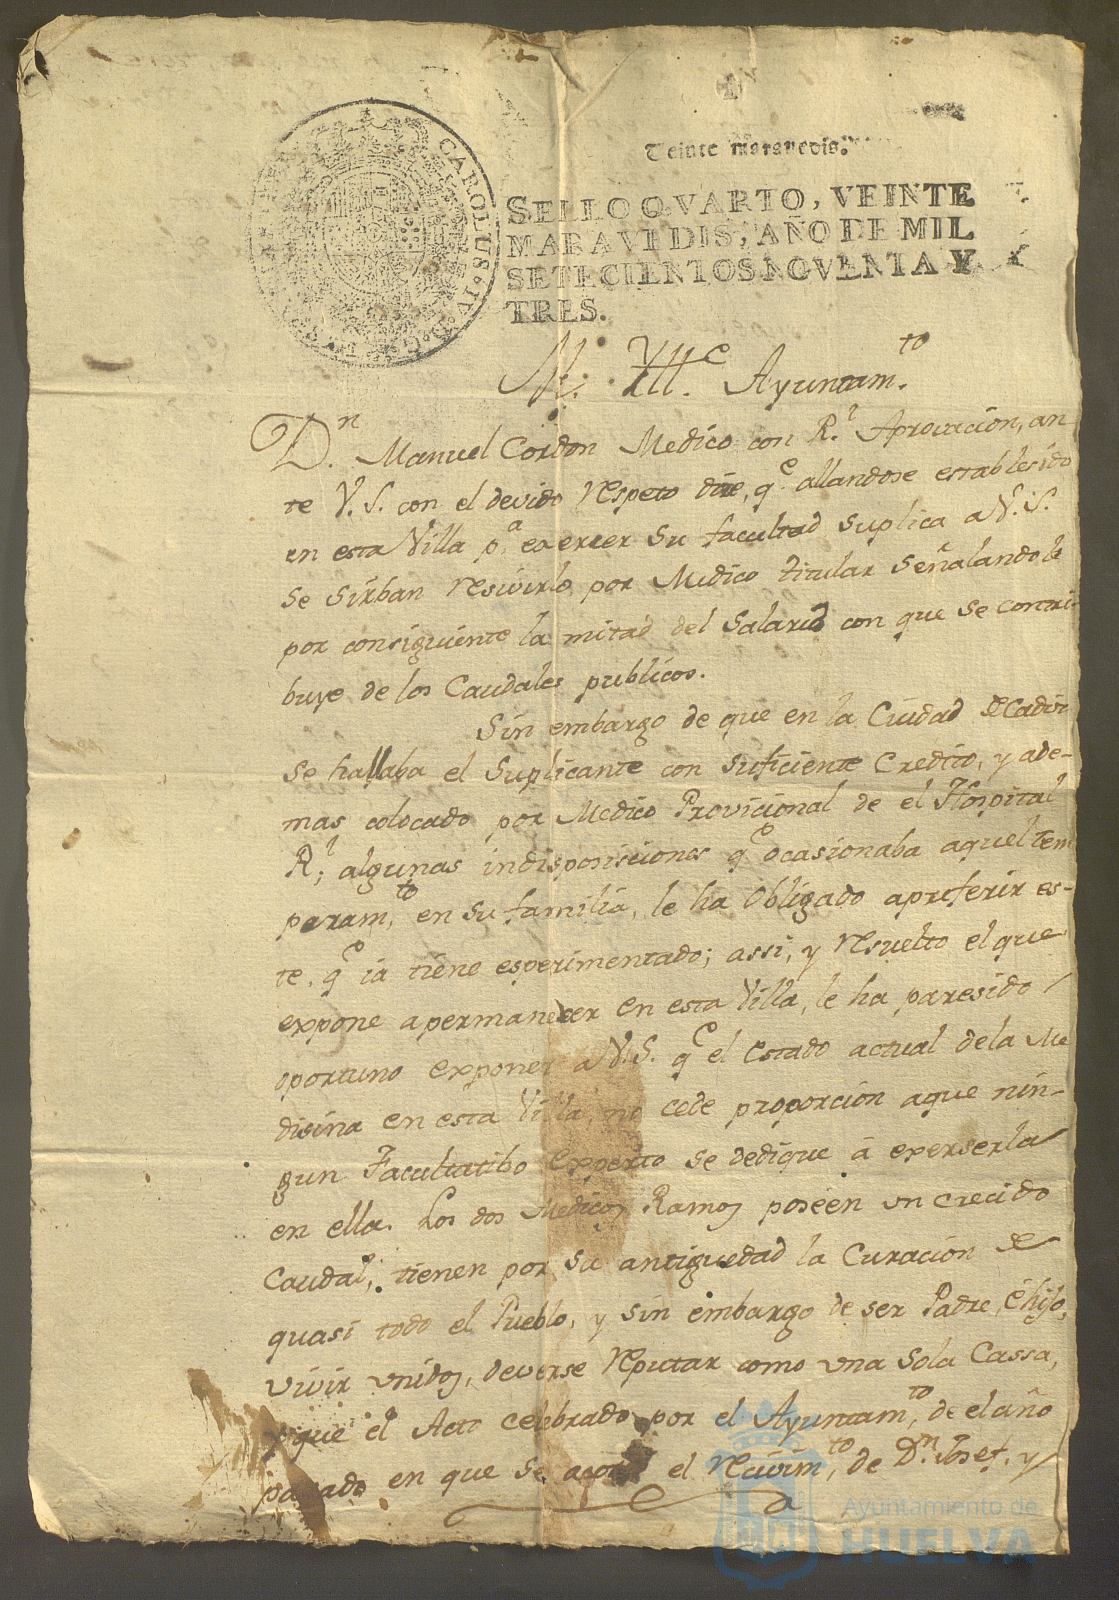 CAROLUS·IV·D·G·
Veinte maravedis.
SELLO QVARTO, VEINTE
MARAVEDIS, AÑO DE MIL
SETECIENTOS NOVENTA Y
TRES.
M. Yllͤ. Ayuntam.ᵗᵒ
Dⁿ. Manuel Cordon Medico con R.ˡ Aprovacion, an-
te V. S. con el devido respeto dice, qᵉ allandose establesido
en esta Villa p.ᵃ exercer su facultad suplica a V. S.
se sirban resivirlo por Medico titular señalandole
por consiguiente la mitad del salario con que se contri-
buye de los Caudales publicos.
Sin embargo de que en la Ciudad de Cadiz
se hallaba el suplicante con suficiente Credito, y ade-
mas colocado por Medico Provicional de el Hospital
R.ˡ, algunas indisposiciones qᵉ ocasionaba aquel tem
peram.ᵗᵒ, en su familia, le ha obligado apreferir es-
te, qᵉ ia tiene esperimentado; assi, y resuelto el que
expone apermanecer en esta Villa, le ha paresido
oportuno exponer a V. S. qᵉ el estado actual dela Me
disina en esta Villa, no cede proporcion aque nin-
gun Facultatibo experto se dedique á exerserla
en ella. Los dos Medicos Ramos poséen un crecido
Caudal, tienen por su antiguedad la Curacion de
quasi todo el Pueblo, y sin embargo de ser Padre, é hijo,
vivir unidos, deverse reputar como una sola Cassa,
y que el Acto celebrado por el Ayuntam.ᵗᵒ, de el año
pasado en que se acordó el recivim.ᵗᵒ, de Dⁿ. Josef, y
Ayuntamiento de
HUELVA